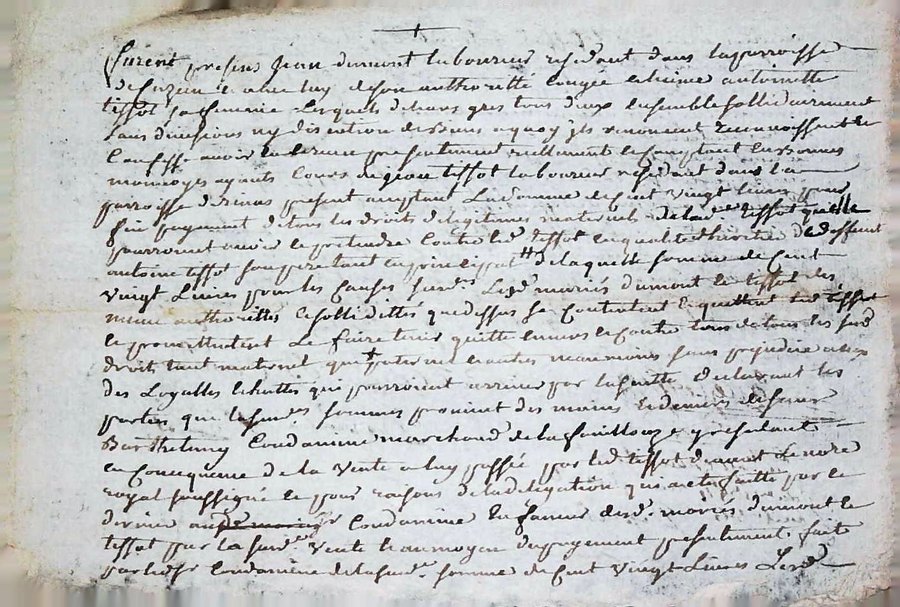 furent presens jean dumont laboureur residant dans laparroisse
de & avec luy deson authoritté congée & licine antoinette
tissot sa femme lesquels deleurs gres tous deux ensemble sollidairement
sans divisions ny discution debiens aquoy jls renoncent reconnoissent et
confesse avoir eu & receu presentement reellement & comptant en bonnes
monnoyes ayants cours de jean tissot laboureur residant dans la
parroisse present acceptant La somme de cent vingt livres pour
fin payement de tous les droits de legitimes maternel dela de tissot quelle
pourroient avoir & pretendre contre led tissot en qualité dheritier de deffunt
antoine tissot son pere tant en principal de laquelle somme de cent
vingt Livres pour les causes susd Lesd mariés dumont & tissot des
meme authorittés & sollidittés que dessus se contentent & quittent led tissot
& promettent Le faire tenir quitte envers & contre tous de tous les susd
droits tant maternel que paternel neanmoins sans prejudice
des Loyalles echuttes qui pourroient arriver par lasuitte Declarant les
parties que la sus somme provient des mains & deniers de sieur
Barthelemy Condamine marchand de la presant
en consequence de la vente a luy passée par led tissot devant le nore
royal soussigné & pour raisons dela delegation qui a ete faitte par le
dernier aud sr Condamine En faveur desd. mariés dumont &
tissot par la susd vente & aumoyen du payement presentement fait
par led sr Condamine de la sus somme de Cent vingt Livres Lesd